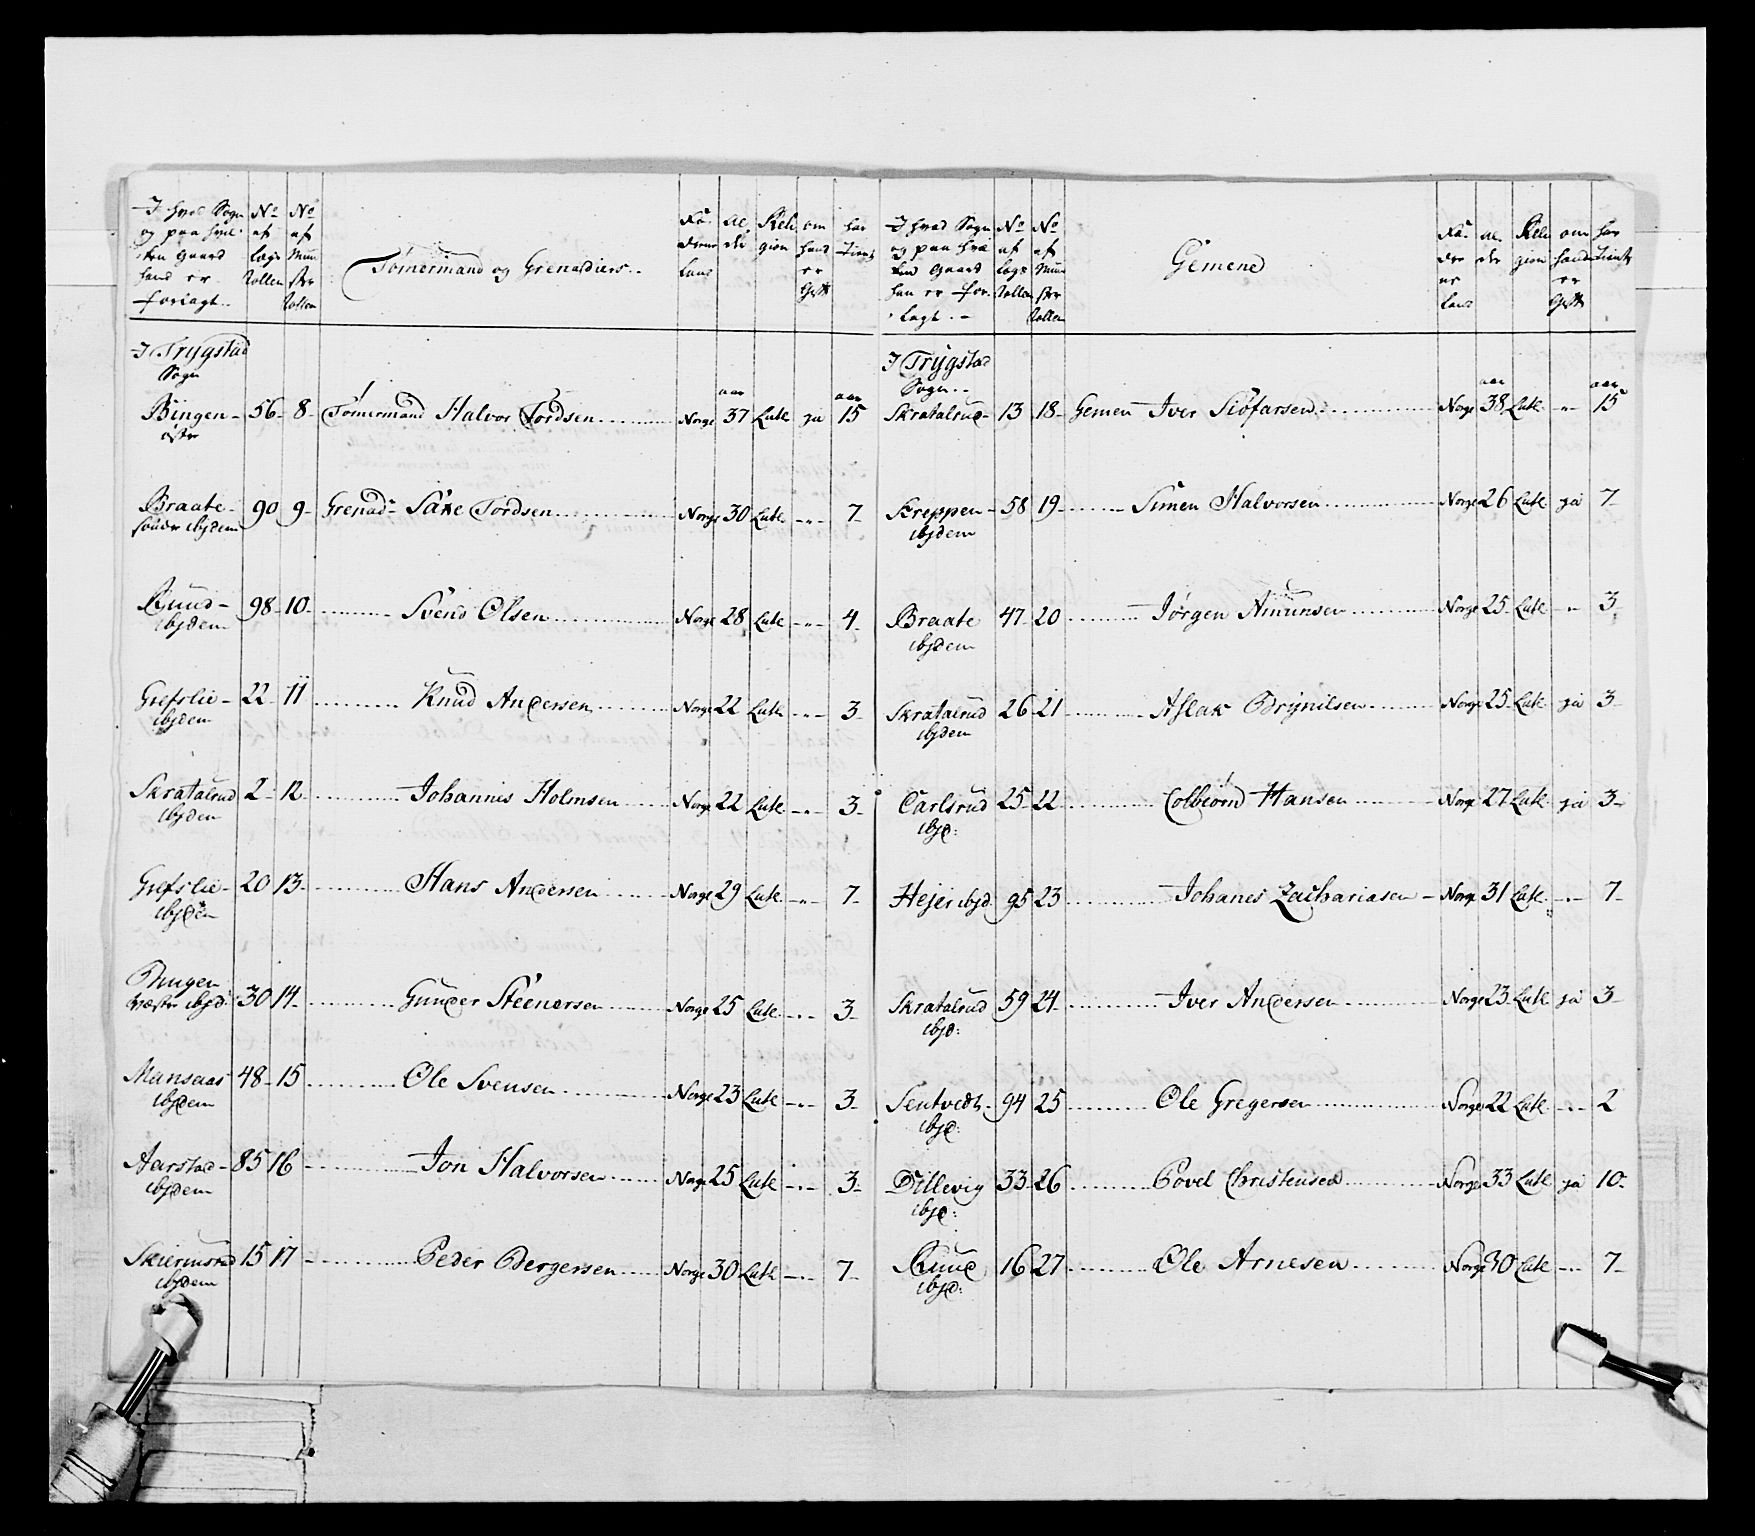 I hvad Sogn og paa hvil- ken Gaard hand er forlagt..
No af Lægs Rollen
No af Mun ster Rollen
Tömermand og Grenadiers..
Fæ- derne Land
Al- der
Reli gion
om hand er Gift
har Tient
I Trygstad Sogn
Bingen østr 56 8 Tömermand Halvor Tordsen Norge 37 aar Luth. ja 15 aar
Braate søndr ibidem 90 9 Grenadr Tordsen Norge 30 Luth. -"- 7
Ruud ibidem 98 10 Svend Olsen Norge 28 Luth. -"- 4
Grefslie ibidem 22 11 Knud Andersen Norge 22 Luth. -"- 3
Skratalrud ibidem 2 12 Johannis Holmsen Norge 22 Luth. -"- 3
Grefslie ibidem 20 13 Hans Andersen Norge 29 Luth. -"- 7
Bingen væstr ibid: 30 14 Gunder Steenersen Norge 25 Luth. -"- 3
Mansaas ibidem 48 15 Ole Svensen Norge 23 Luth. -"- 3
Aarstad ibidem 85 16 Jon Halvorsen Norge 25 Luth. -"- 3
Skiermsrud ibidem 15 17 Peder Bergersen Norge 30 Luth. -"- 7
I hvad Sogn og paa hvil ken Gaard han er for- lagt.
No af Lægs Rollen
No af Mun ster Rollen
Gemene
Fæ- der ne Land
Al- der
Reli gion
om hand er Gift
har Tient
I Trygstad Sogn
Skratalrud 13 18 Gemen Iver Norge 38 aar Luth. -"- 15 aar
Kreppen ibidem 58 19 Simen Halvorsen Norge 26 Luth. ja 7
Braate ibidem 47 20 Jørgen Amunsen Norge 25 Luth. -"- 3
Skratalrud ibidem 26 21 Aslak Brynilsen Norge 25 Luth. ja 3
Carlsrud ibid: 25 22 Colbiörn Hansen Norge 27 Luth. ja 3
Hejer ibid 95 23 Johanes Zachariasen Norge 31 Luth. -"- 7
Skratalrud ibid: 59 24 Iver Andersen Norge 23 Luth. ja 3
Sentvedt ibid: 94 25 Ole Gregersen Norge 22 Luth. -"- 2
Dillevig ibid: 33 26 Povel Christensen Norge 33 Luth. ja 10
Ruud ibid: 16 27 Ole Arnesen Norge 30 Luth. -"- 7